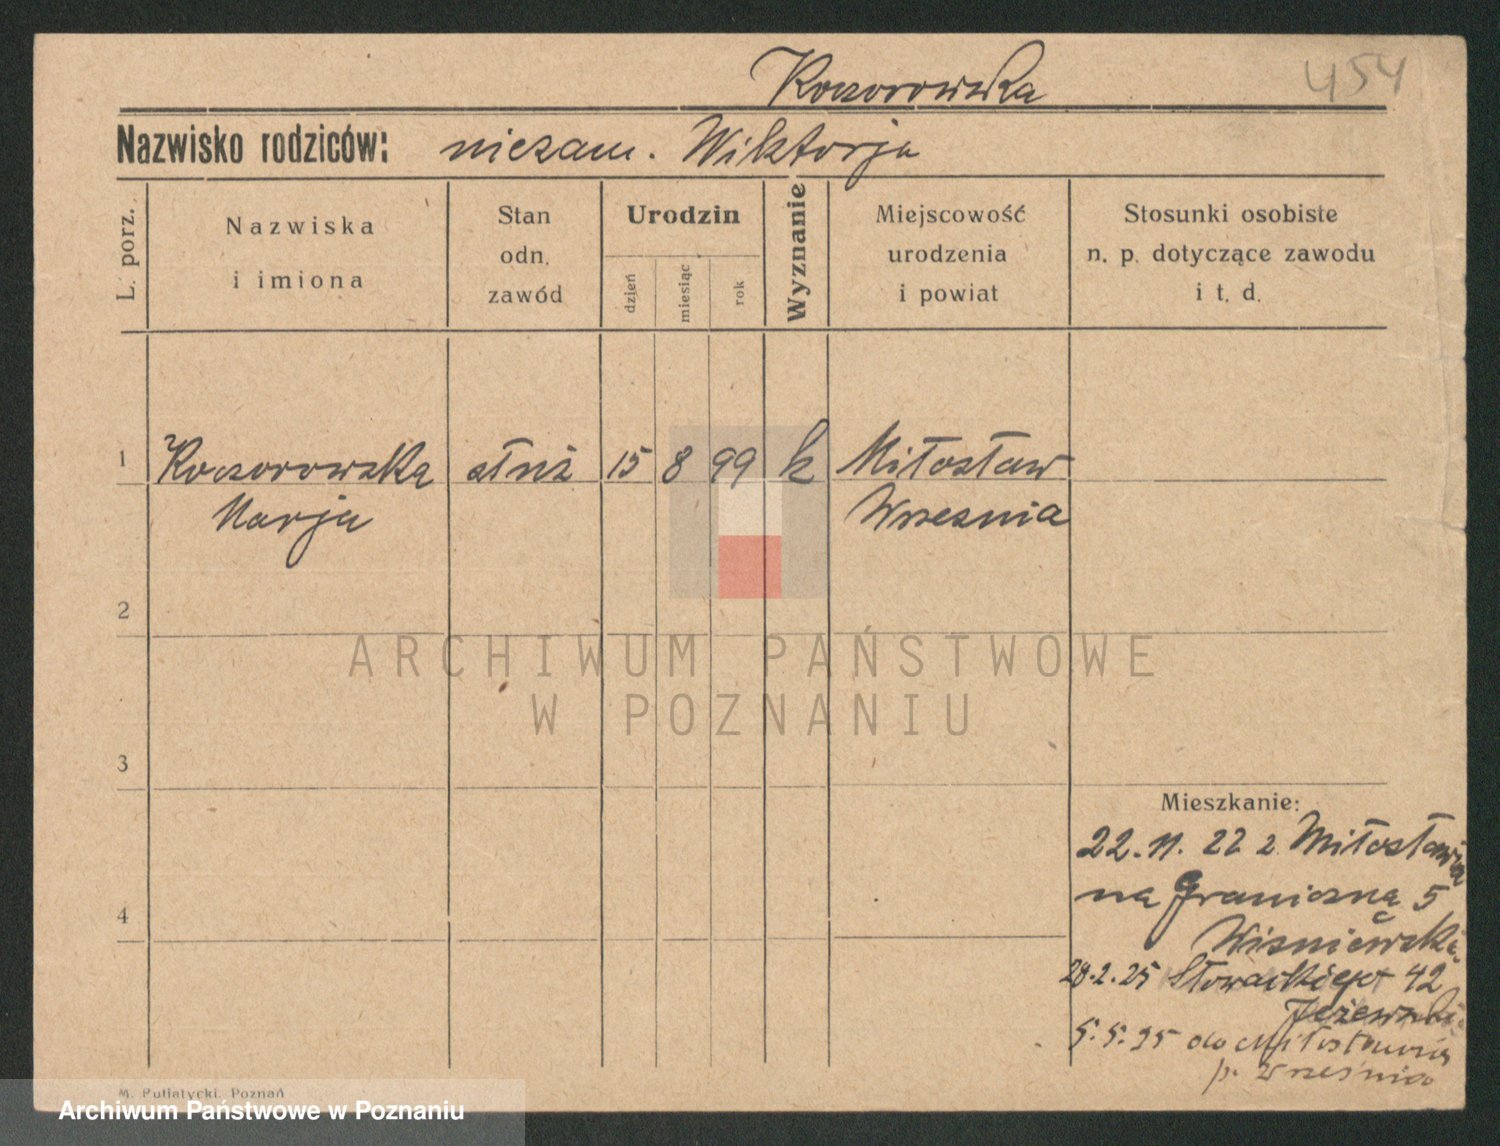 Koczorowska
454
Nazwisko rodziców: niezam. Wiktorja
L. porz.
Nazwiska
i imiona
Stan
odn.
zawód
Urodzin
dzień
miesiąc
rok
Wyznanie
Miejscowość
urodzenia
i powiat
Stosunki osobiste
n. p. dotyczące zawodu
i t. d.
1 Koczorowska służ 15 8 99 k Miłosław
Marja Wrzesnia
2
ARCHIWUM PAŃSTWOWE
W POZNANIU
3
Mieszkanie:
22. 11. 22 z Miłosławia
na Graniczną 5
4
Wisniewski
28. 2. 25 Słowackiego 42
Jeżewski
5. 5. 25 do Miłosławia
p. Wrzesnia
M. Putiatycki, Poznań
Archiwum Państwowe w Poznaniu